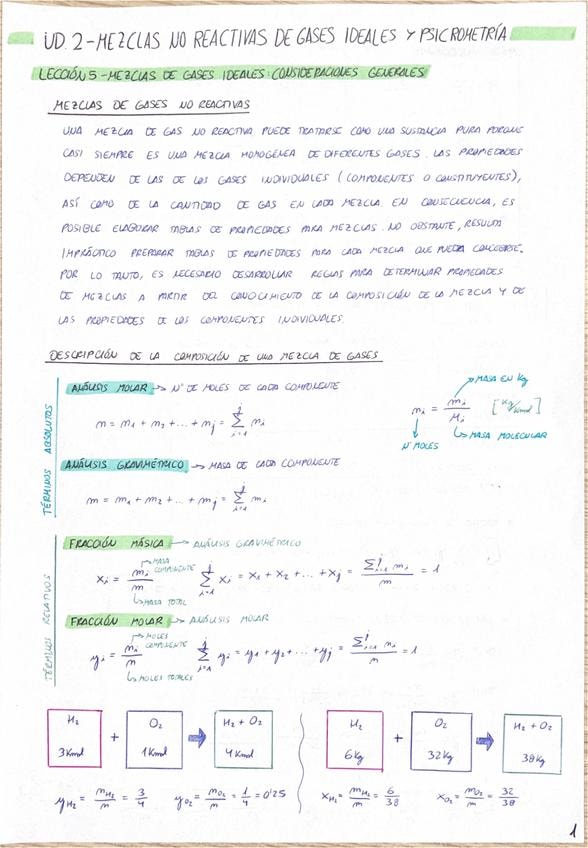 UD. 2 - MEZCLAS NO REACTIVAS DE GASES IDEALES Y PSICROMETRÍA
LECCIÓN 5 - MEZCLAS DE GASES IDEALES: CONSIDERACIONES GENERALES
MEZCLAS DE GASES NO REACTIVAS
UNA MEZCLA DE GAS NO REACTIVA PUEDE TRATARSE COMO UNA SUSTANCIA PURA PORQUE
CASI SIEMPRE ES UNA MEZCLA HOMOGÉNEA DE DIFERENTES GASES. LAS PROPIEDADES
DEPENDEN DE LAS DE LOS GASES INDIVIDUALES (COMPONENTES O CONSTITUYENTES),
ASÍ COMO DE LA CANTIDAD DE GAS EN CADA MEZCLA. EN CONSECUENCIA, ES
POSIBLE ELABORAR TABLAS DE PROPIEDADES PARA MEZCLAS. NO OBSTANTE, RESULTA
IMPRÁCTICO PREPARAR TABLAS DE PROPIEDADES PARA CADA MEZCLA QUE PUEDA CONCEBIRSE.
POR LO TANTO, ES NECESARIO DESARROLLAR REGLAS PARA DETERMINAR PROPIEDADES
DE MEZCLAS A PARTIR DEL CONOCIMIENTO DE LA COMPOSICIÓN DE LA MEZCLA Y DE
LAS PROPIEDADES DE LOS COMPONENTES INDIVIDUALES.
DESCRIPCIÓN DE LA COMPOSICIÓN DE UNA MEZCLA DE GASES
TÉRMINOS ABSOLUTOS
ANÁLISIS MOLAR → Nº DE MOLES DE CADA COMPONENTE
n = n1 + n2 + ... + nj = Σ_{i=1}^{j} ni
ni = mi / Mi [Kg/Kmol]
MASA EN Kg
Nº MOLES
MASA MOLECULAR
ANÁLISIS GRAVIMÉTRICO → MASA DE CADA COMPONENTE
m = m1 + m2 + ... + mj = Σ_{i=1}^{j} mi
TÉRMINOS RELATIVOS
FRACCIÓN MÁSICA → ANÁLISIS GRAVIMÉTRICO
xi = mi / m → MASA COMPONENTE → MASA TOTAL Σ_{i=1}^{j} xi = x1 + x2 + ... + xj = Σ_{i=1}^{j} mi / m = 1
FRACCIÓN MOLAR → ANÁLISIS MOLAR
yi = ni / n → MOLES COMPONENTE → MOLES TOTALES Σ_{i=1}^{j} yi = y1 + y2 + ... + yj = Σ_{i=1}^{j} ni / n = 1
H2 3 Kmol + O2 1 Kmol → H2 + O2 4 Kmol
H2 6 Kg + O2 32 Kg → H2 + O2 38 Kg
yH2 = nH2 / n = 3/4 yO2 = nO2 / n = 1/4 = 0'25
xH2 = mH2 / m = 6/38 xO2 = mO2 / m = 32/38
1